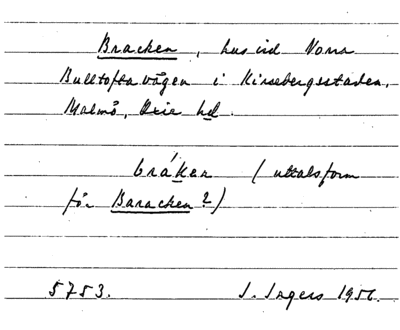 Bracken, hus vid Norra
Bulltoftavägen i Kirsebergsstaden,
Malmö, Oxie hd.
bråken (uttalsform
för Baracken?)
5753. J. Ingers 1956.